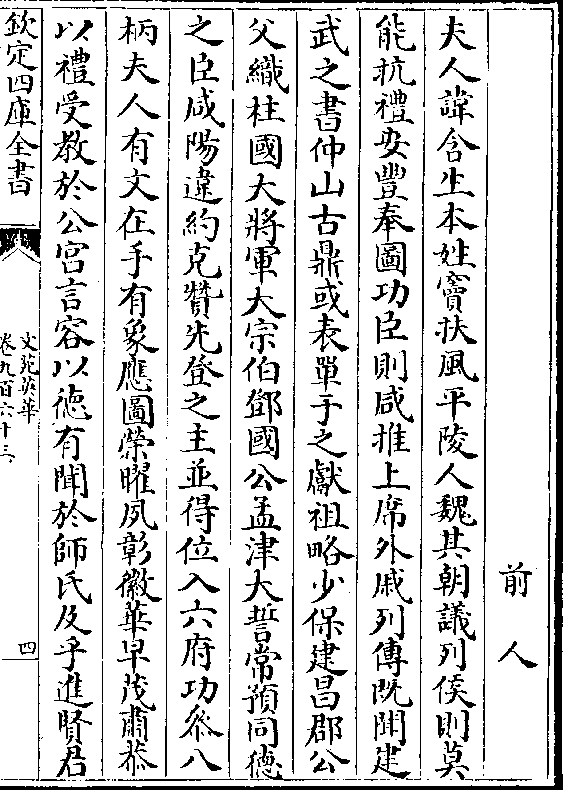 前人
夫人諱含生本姓竇扶風平陵人魏其朝議列侯則莫
能抗禮安豐奉圖功臣則咸推上席外戚列傳既聞建
武之書仲山古鼎或表單于之獻祖略少保建昌郡公
父織柱國大將軍大宗伯鄧國公孟津大誓常預同德
之臣咸陽違約克贊先登之主並得位入六府功叅八
柄夫人有文在手有象應圖榮曜夙彰徽華早茂肅恭
以禮受教於公宫言容以德有聞於師氏及乎進賢君
欽定四庫全書
文苑英華
卷九百六十三
四